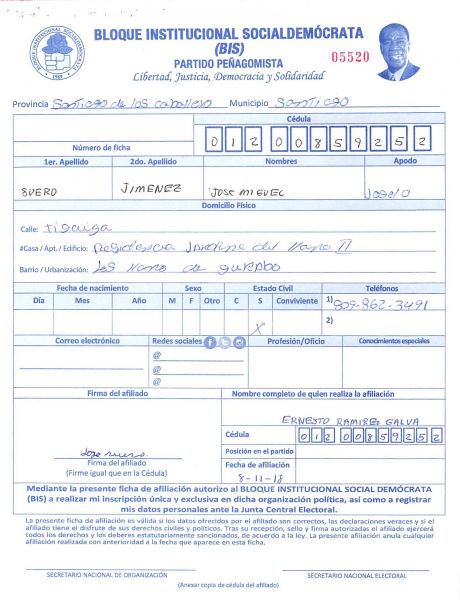 BLOQUE INSTITUCIONAL SOCIALDEMÓCRATA
(BIS)
05520
PARTIDO PEÑAGOMISTA
Libertad, Justicia, Democracia y Solidaridad
Provincia Santiago de los caballero Municipio Santiago
Cédula
Número de ficha 012 0085925 2
1er. Apellido 2do. Apellido Nombres Apodo
SUERO JIMENEZ JOSE MIGUEL
Domicilio Físico
Calle:
#Casa / Apt. / Edificio: Residencia Jardine del II
Barrio / Urbanización: de gurabo
Fecha de nacimiento Sexo Estado Civil Teléfonos
Día Mes Año M F Otro C S Conviviente 1) 809-862-3491
X 2)
Correo electrónico Redes sociales Profesión/Oficio Conocimientos especiales
@
@
@
Firma del afiliado Nombre completo de quien realiza la afiliación
ERNESTO RAMIREZ GALVA
Cédula 012 0085925 2
jose suero
Firma del afiliado
(Firme igual que en la Cédula)
Posición en el partido
Fecha de afiliación
8-11-18
Mediante la presente ficha de afiliación autorizo al BLOQUE INSTITUCIONAL SOCIAL DEMÓCRATA
(BIS) a realizar mi inscripción única y exclusiva en dicha organización política, así como a registrar
mis datos personales ante la Junta Central Electoral.
La presente ficha de afiliación es válida si los datos ofrecidos por el afiliado son correctos, las declaraciones veraces y si el
afiliado tiene el disfrute de sus derechos civiles y políticos. Tras su recepción, sello y firma autorizadas el afiliado ejercerá
todos los derechos y los deberes estatutariamente sancionados, de acuerdo a la ley. La presente afiliación anula cualquier
afiliación realizada con anterioridad a la fecha que aparece en esta ficha.
SECRETARIO NACIONAL DE ORGANIZACIÓN SECRETARIO NACIONAL ELECTORAL
(Anexar copia de cédula del afiliado)